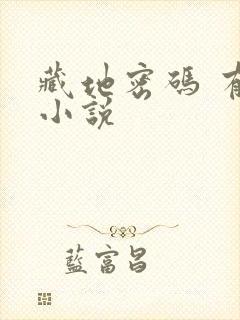 藏地密碼 有
小說
藍富昌